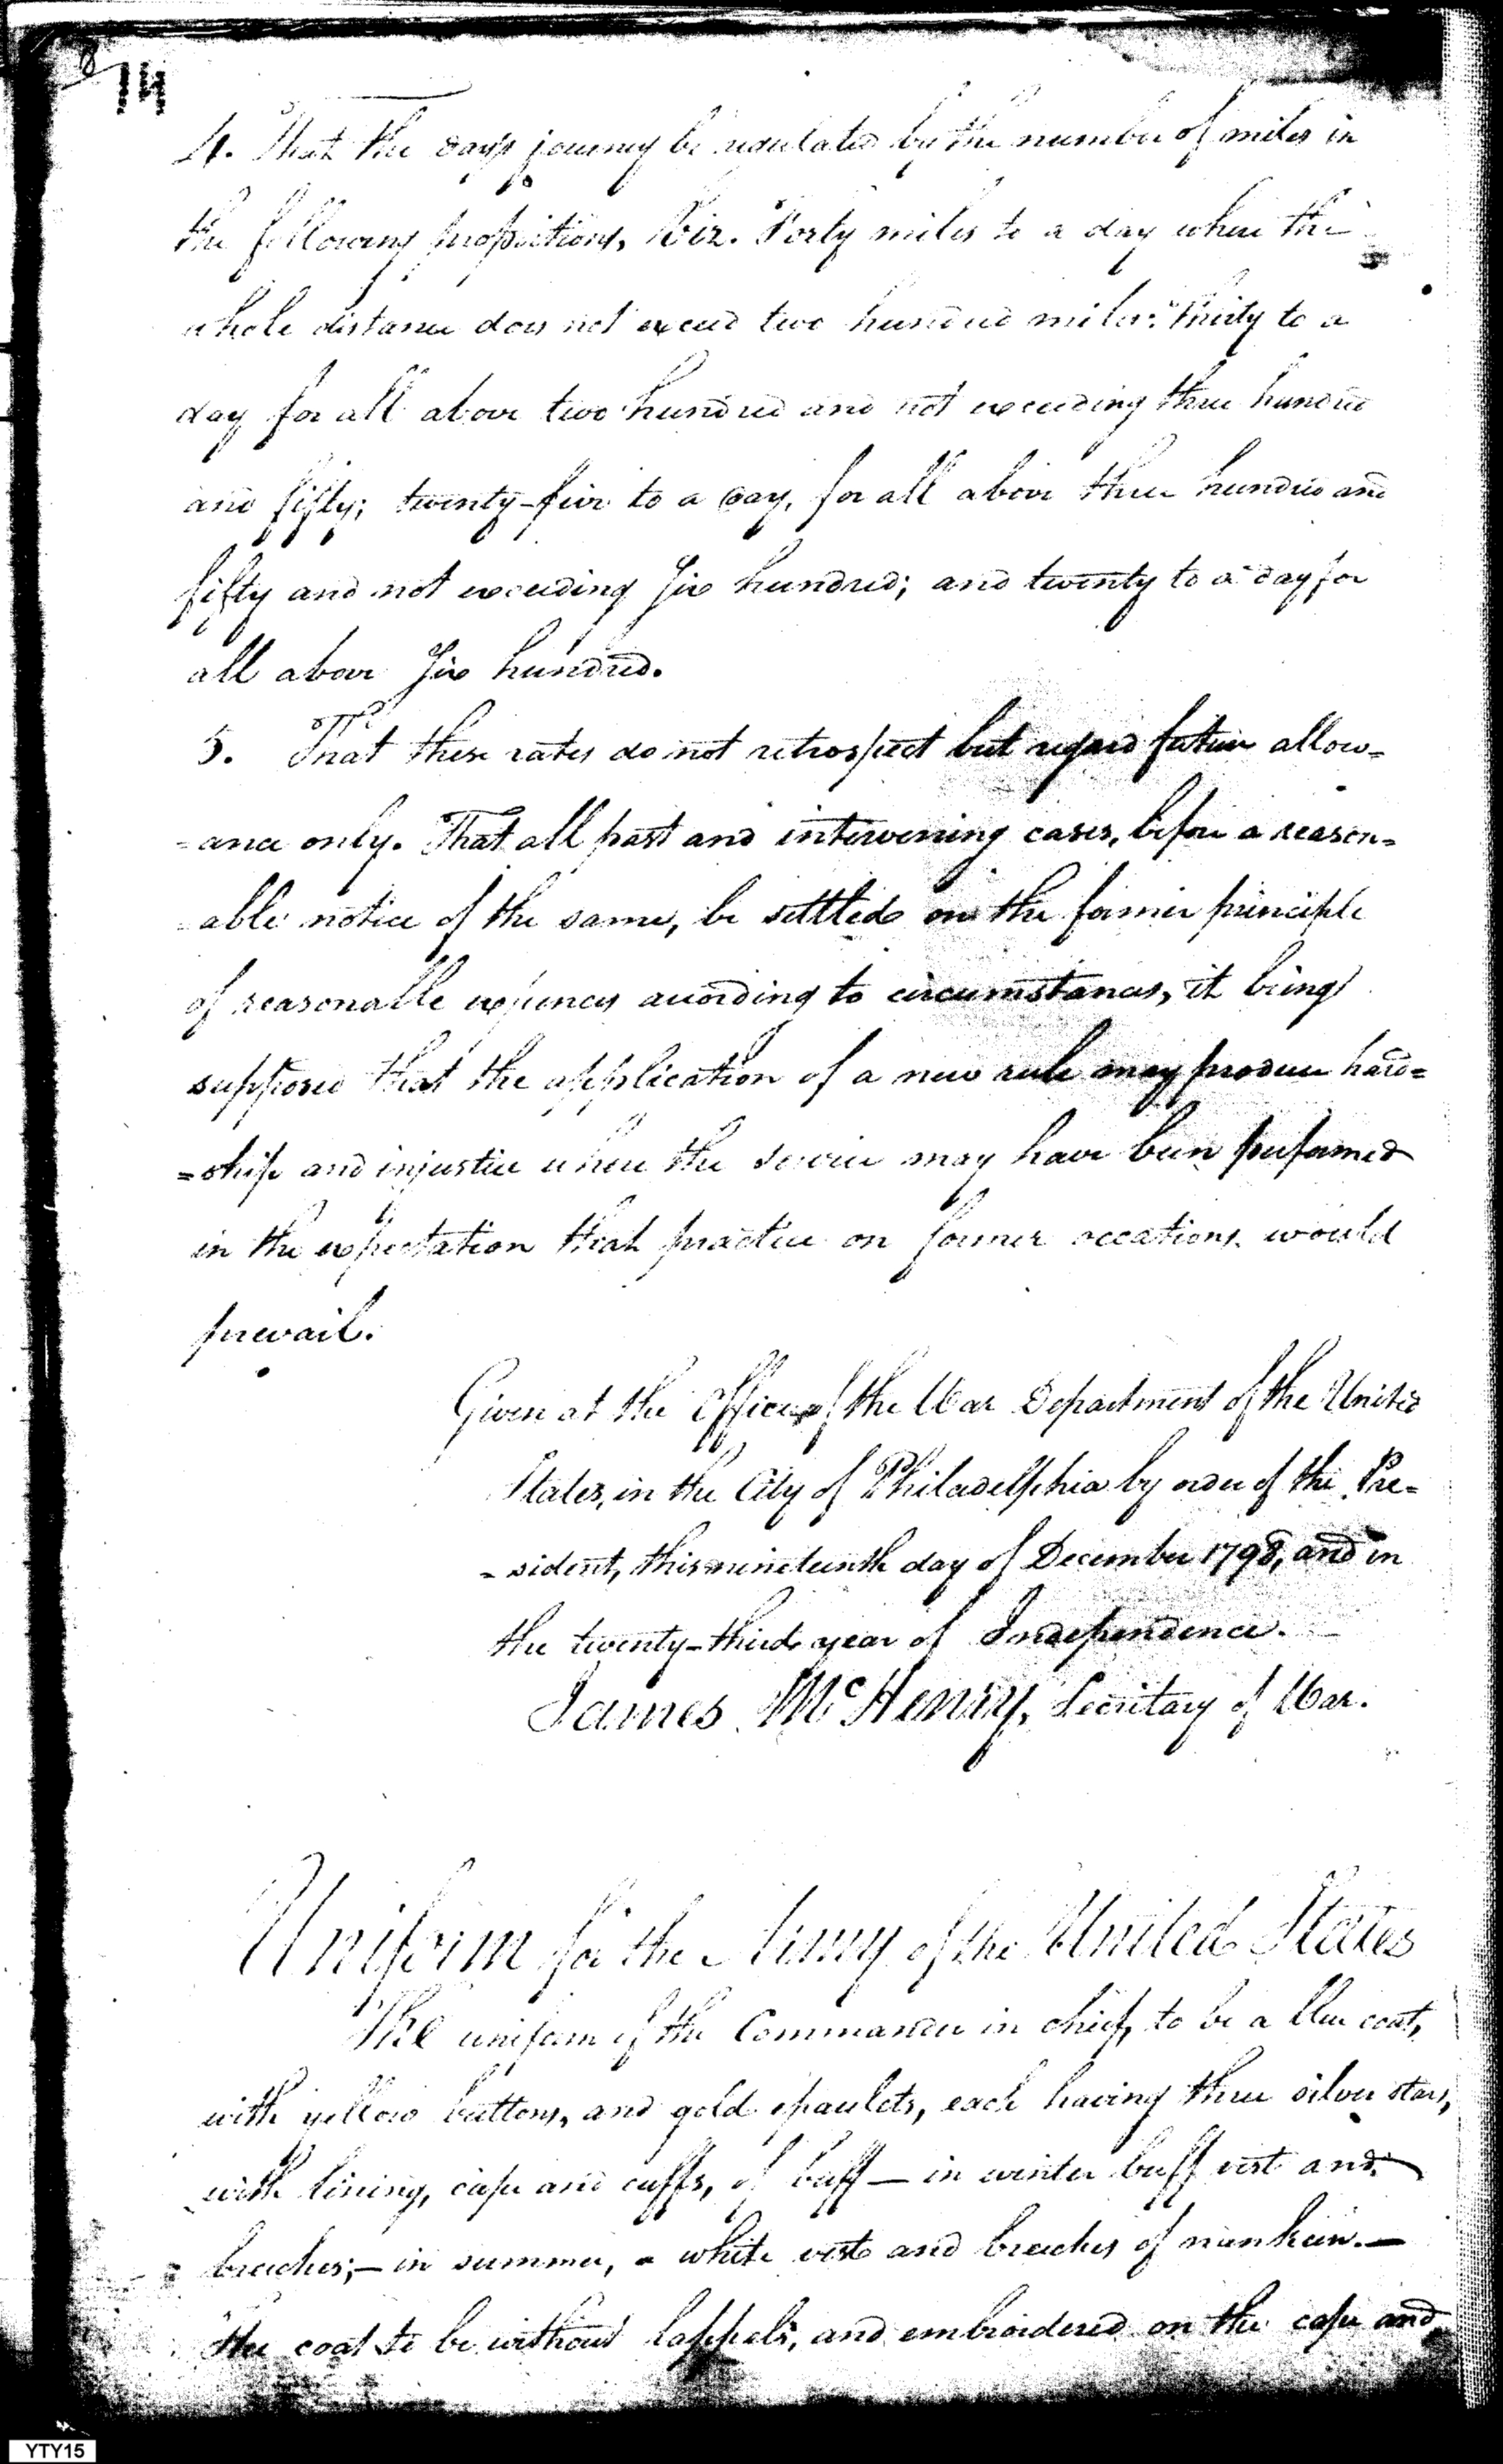 8
14
4. That the day's journey be regulated by the number of miles in
the following proportions, Viz. Forty miles to a day when the
whole distance does not exceed two hundred miles: thirty to a
day for all above two hundred and not exceeding three hundred
and fifty; twenty-five to a day, for all above three hundred and
fifty and not exceeding Six hundred; and twenty to a day for
all above Six hundred.
5. That these rates do not retrospect but regard future allow=
=ance only. That all past and intervening cases, before a reason=
=able notice of the same, be settled on the former principle
of reasonable expences according to circumstances, it being
supposed that the application of a new rule may produce hard=
=ship and injustice when the service may have been performed
in the expectation that practice on former occations would
prevail.
Given at the Office of the War Department of the United
States, in the City of Philadelphia by order of the Pre=
- sident, this nineteenth day of December 1798, and in
the twenty-third year of Independence.
James McHenry, Secretary of War.
Uniform for the Army of the United States
The uniform of the Commander in chief, to be a blue coat,
with yellow buttons, and gold epaulets, each having three silver stars,
with lining, cape and cuffs, of buff — in winter buff vest and
breeches; — in summer, a white vest and breeches of nankeen. —
The coat to be without lappels, and embroidered on the cape and
YTY15